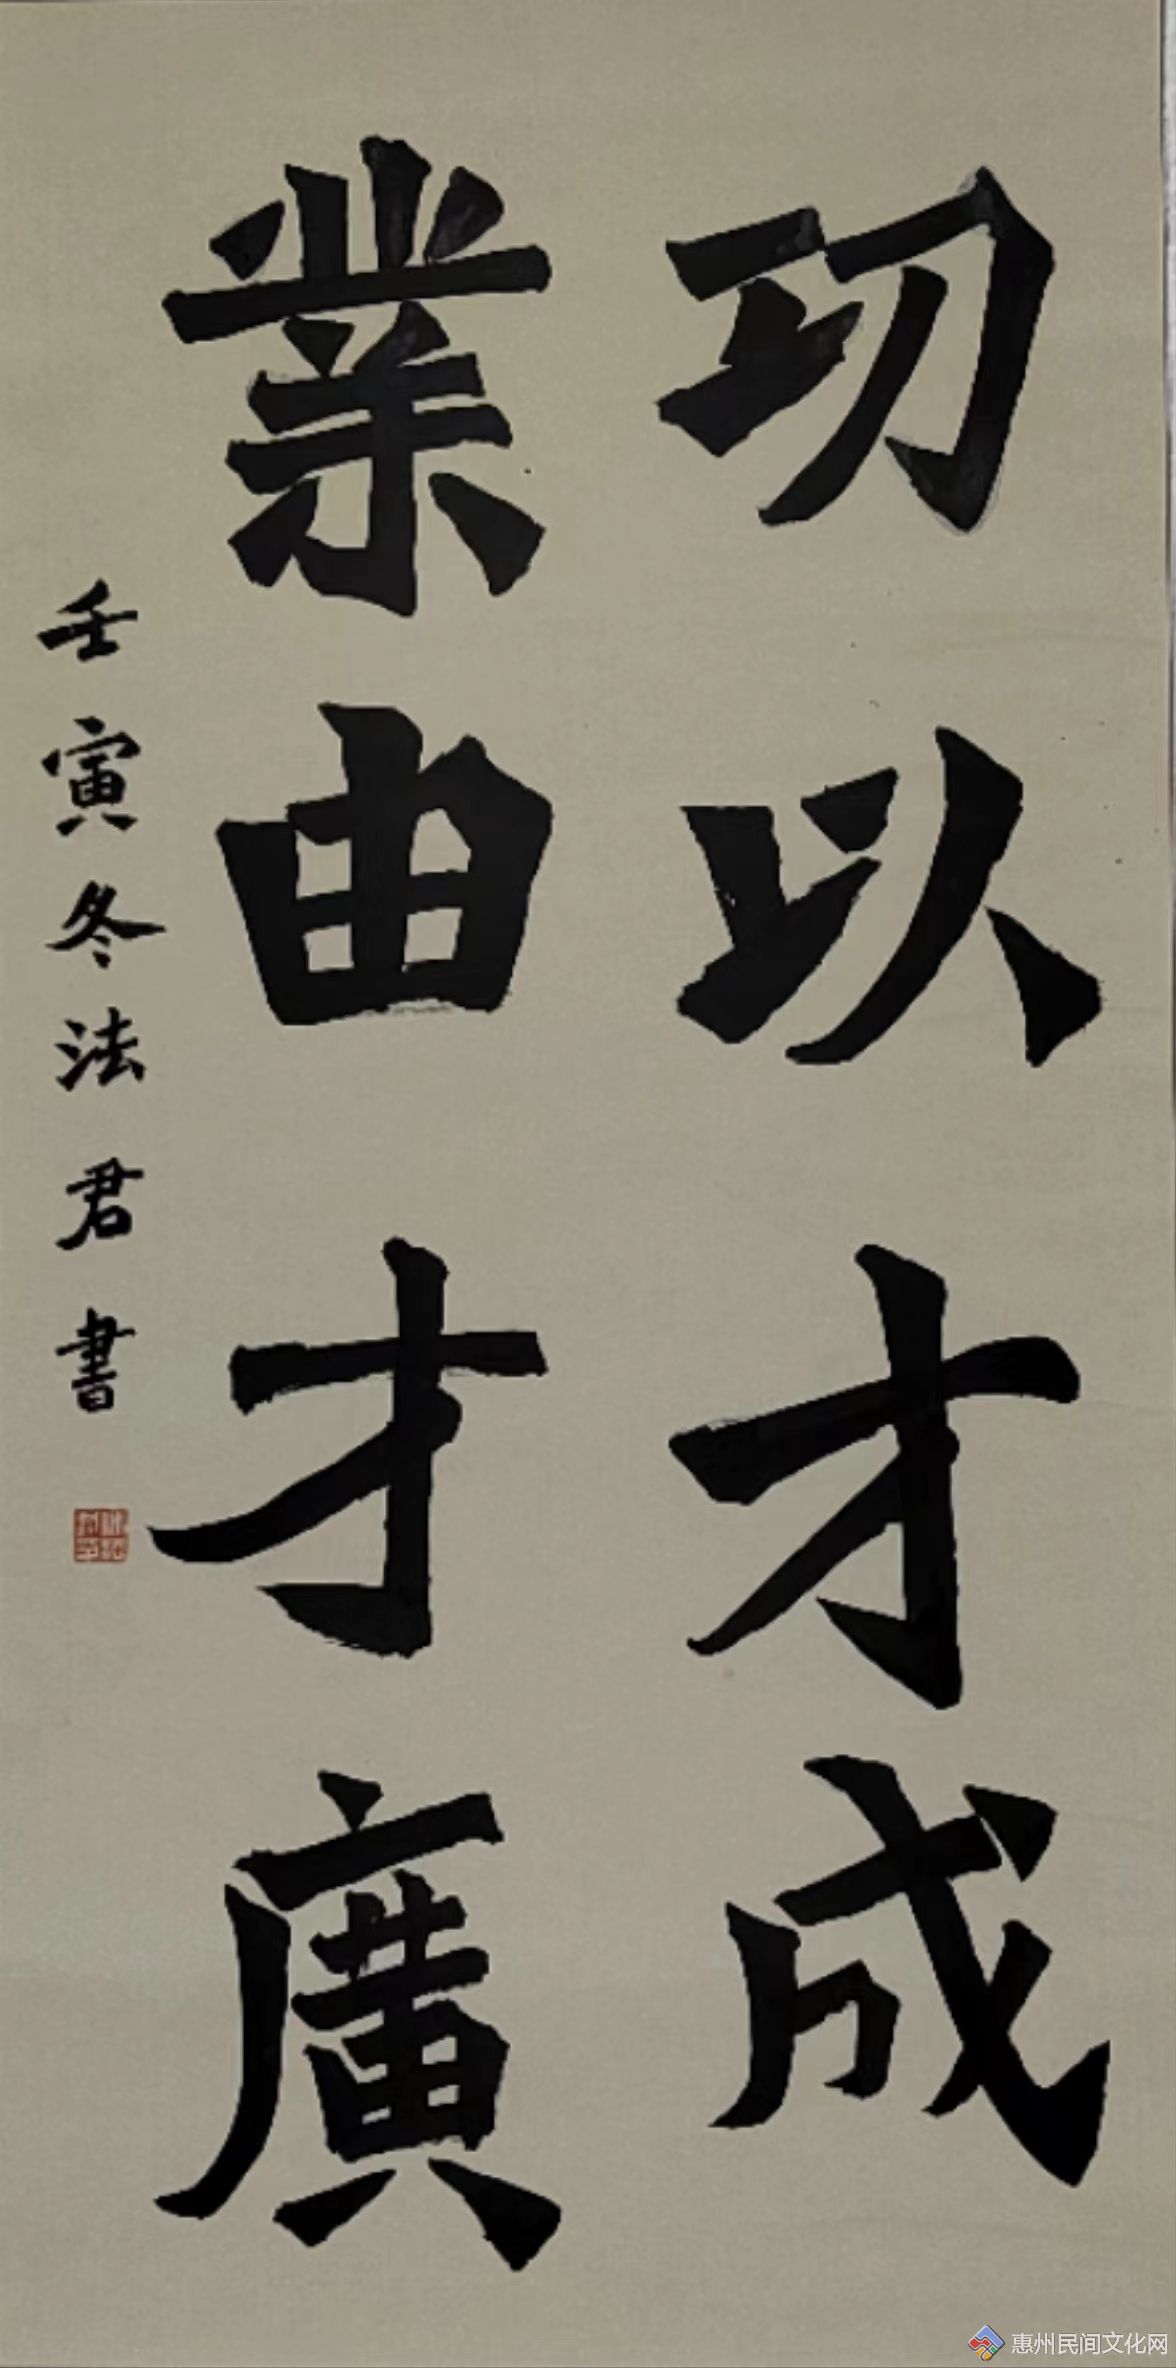 功以才成
業由才廣
壬寅冬法君書
惠州民间文化网